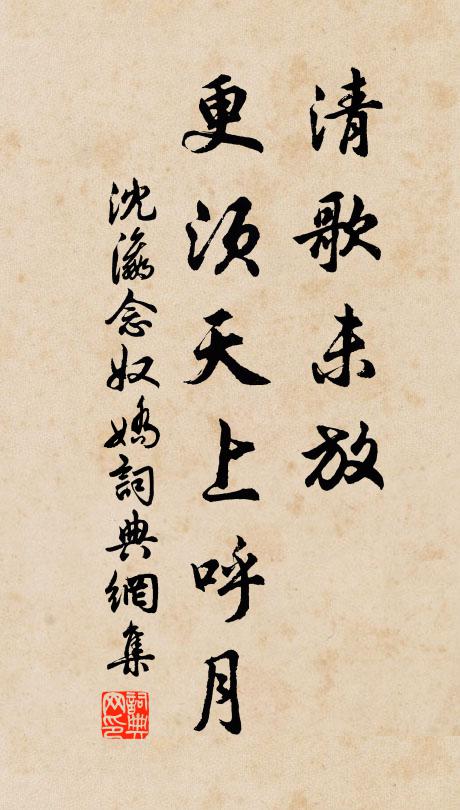 清歌未放
更須天上呼月
沈瀛念奴嬌詞典網集
詞典网印